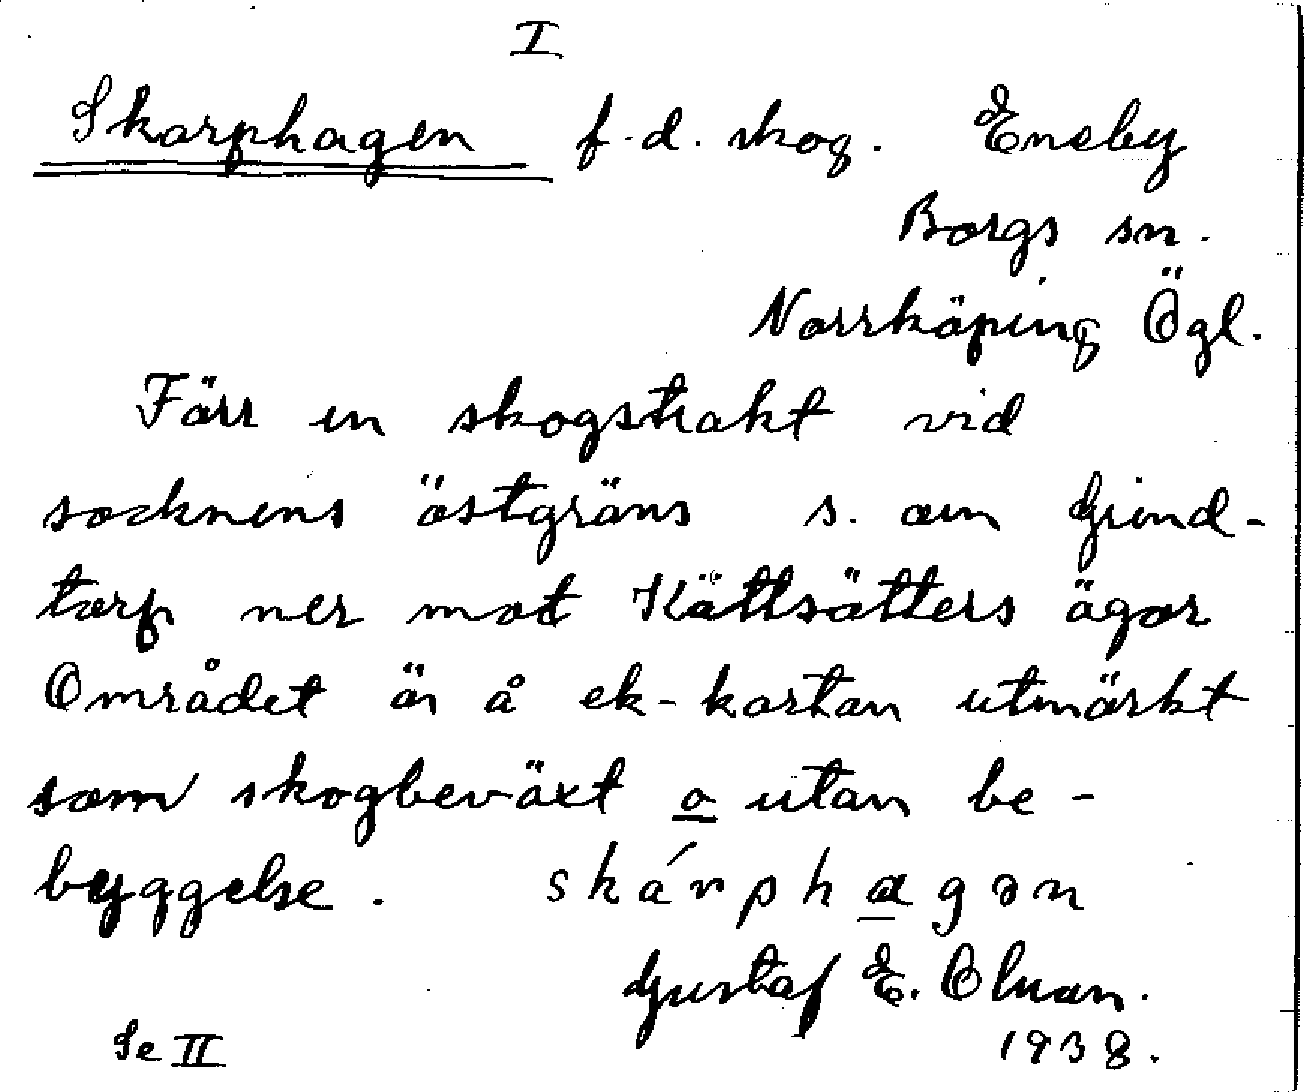 I
Skarphagen f.d. skog. Eneby
Borgs sn.
Norrköping Ögl.
Förr en skogstrakt vid
socknens östgräns s. om Grind-
torp ner mot Kättsätters ägor
Området är å ek-kartan utmärkt
som skogbeväxt o utan be-
byggelse. skárphagən
Gustaf E. Olsson.
Se II 1938.